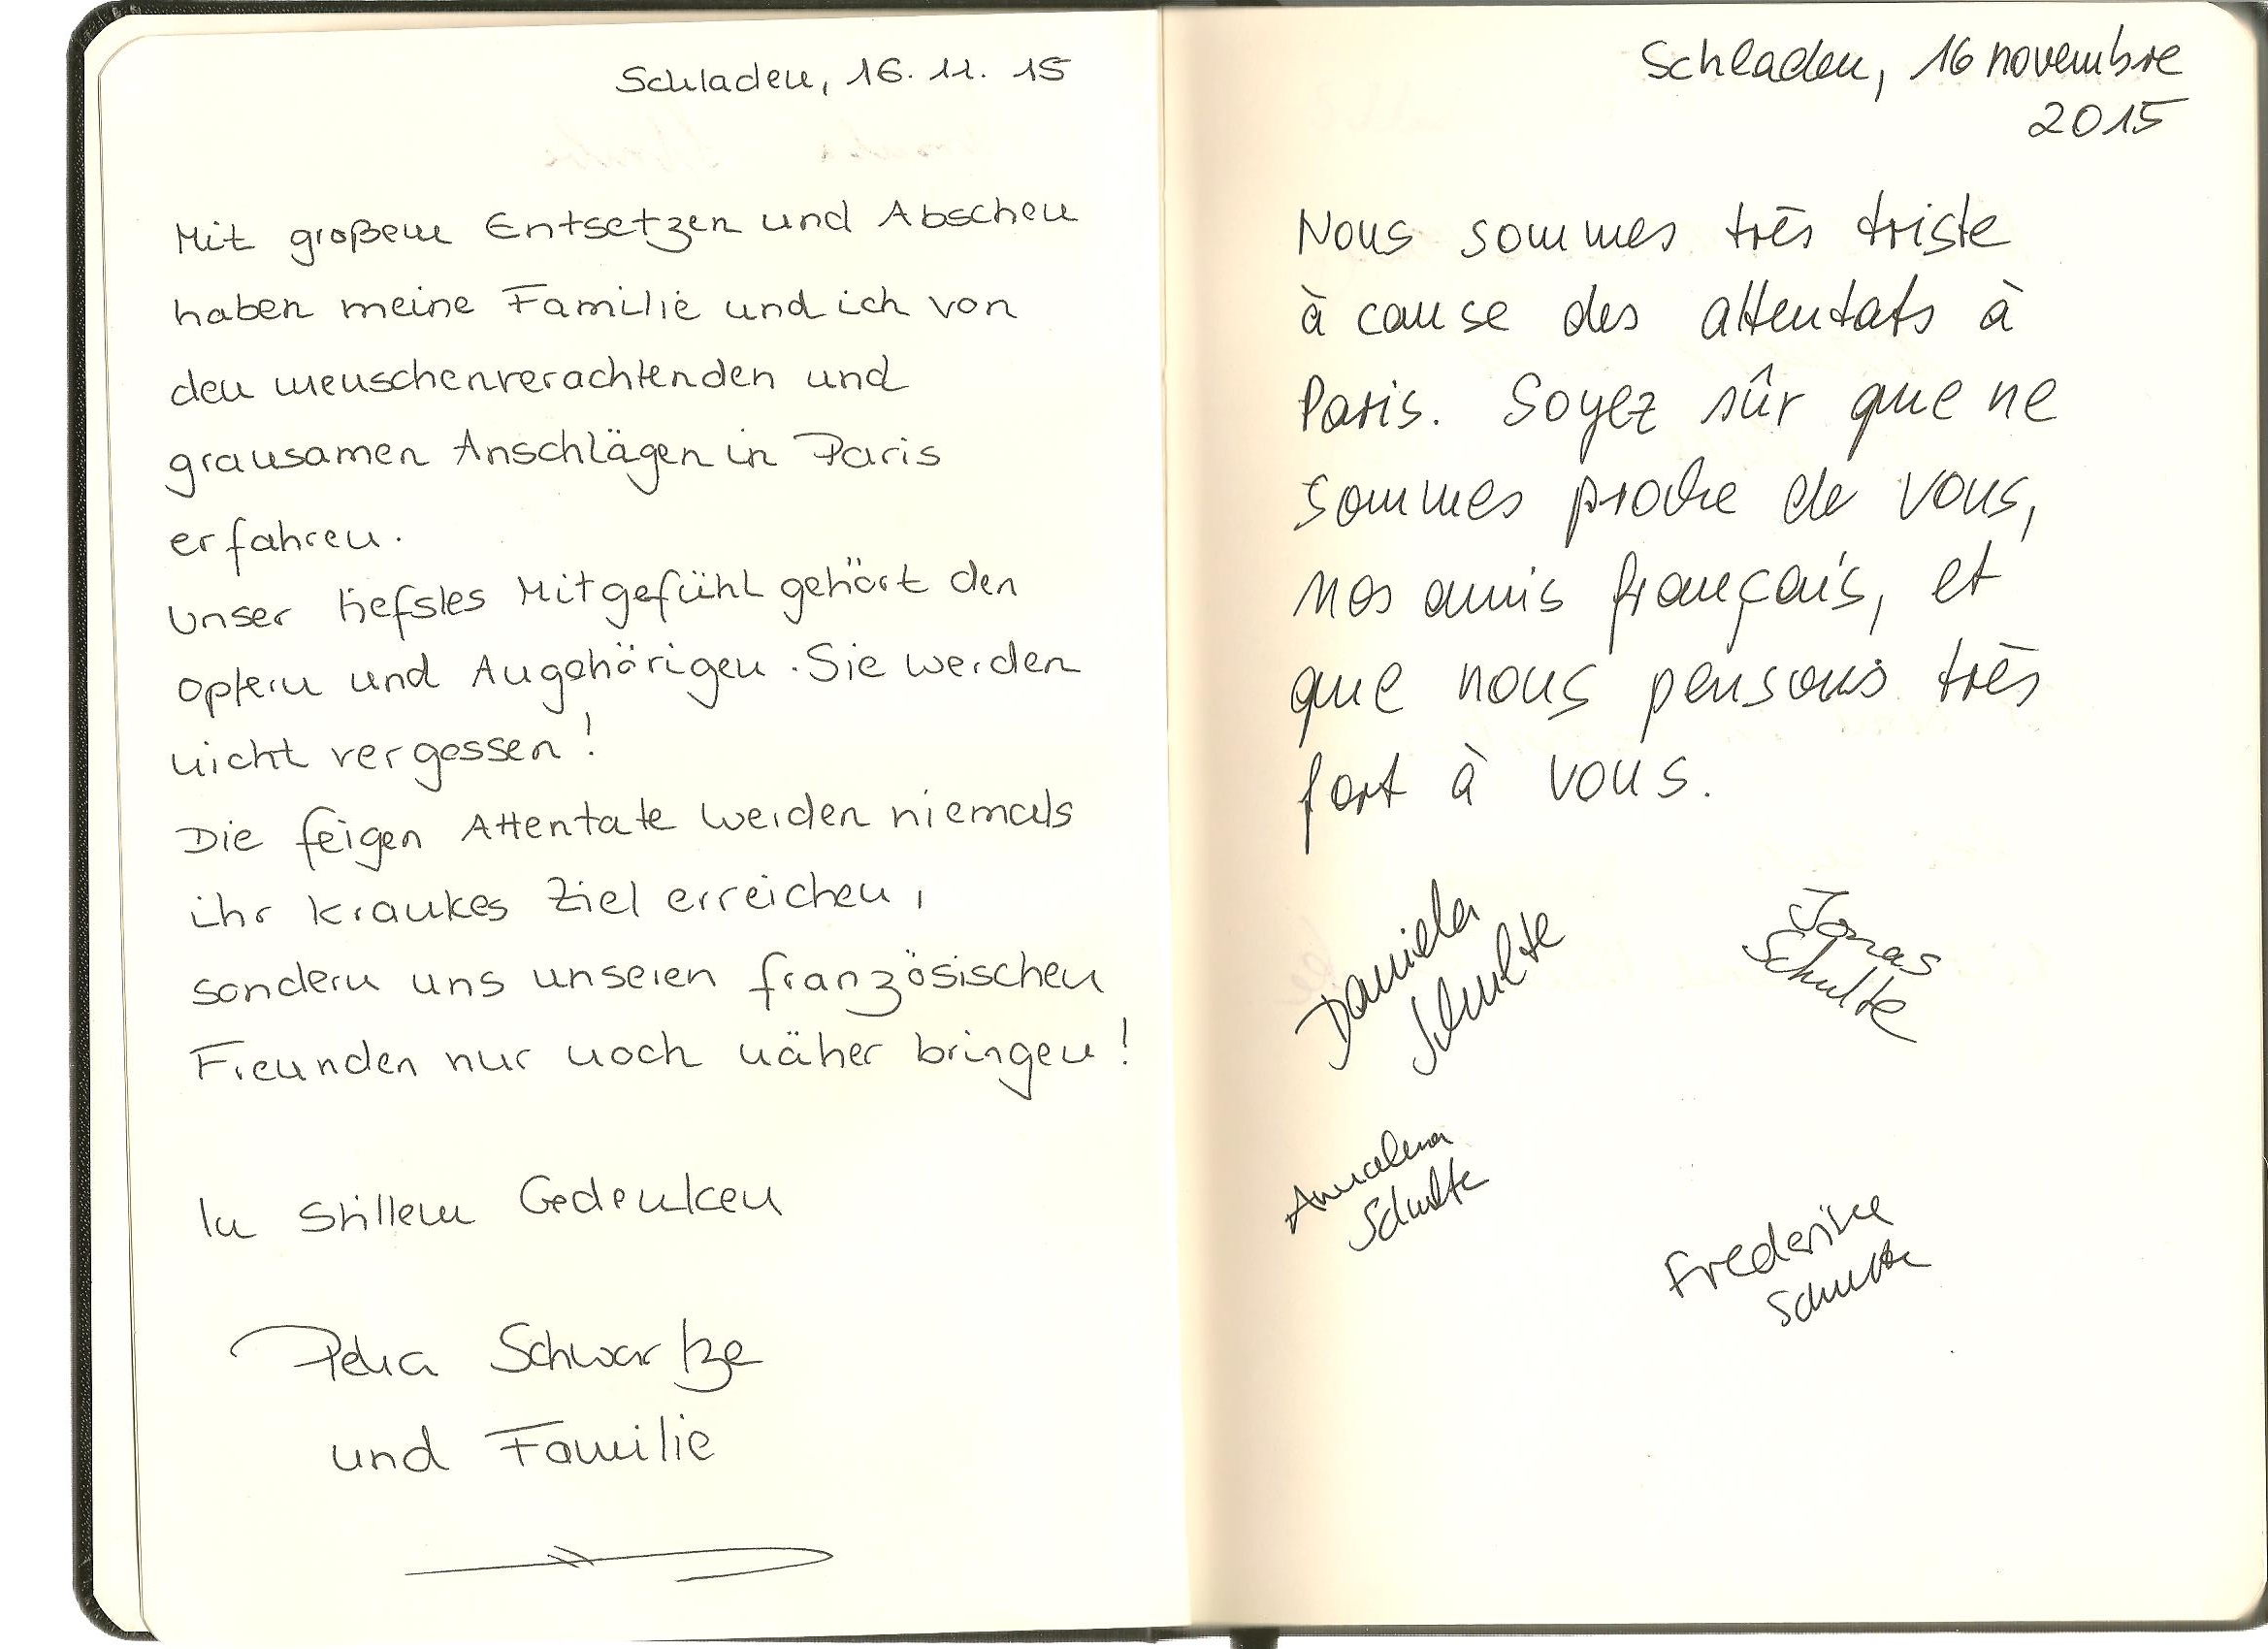 Schladen, 16. 11. 15
Mit großem Entsetzen und Abscheu
haben meine Familie und ich von
den menschenverachtenden und
grausamen Anschlägen in Paris
erfahren.
Unser tiefstes Mitgefühl gehört den
Opfern und Angehörigen. Sie werden
nicht vergessen!
Die feigen Attentate werden niemals
ihr krankes Ziel erreichen,
sondern uns unseren französischen
Freunden nur noch näher bringen!
In stillem Gedenken
Petra Schwartze
und Familie
Schladen, 16 novembre
2015
Nous sommes très triste
à cause des attentats à
Paris. Soyez sûr que ne
sommes proche de vous,
nos amis français, et
que nous pensons très
fort à vous.
Daniela
Schulte
Jonas
Schulte
Annalena
Schulte
Frederike
Schulte